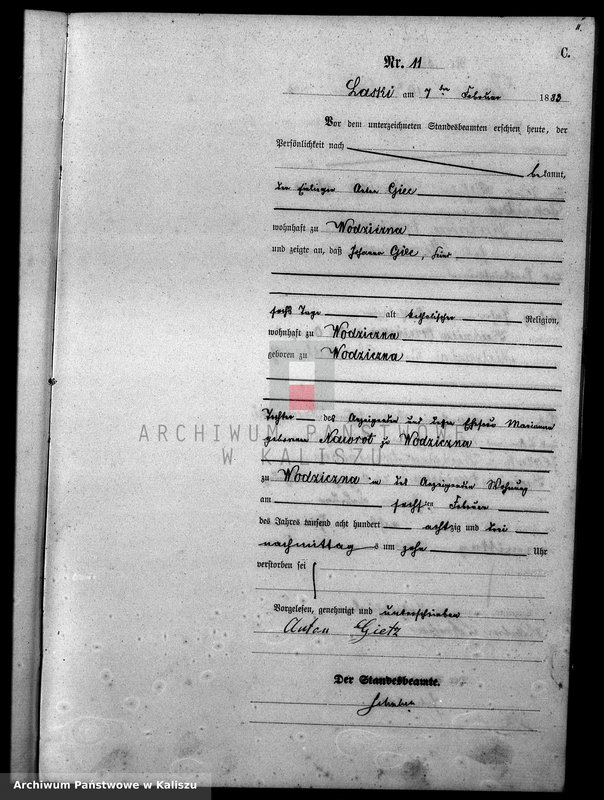 11.
C.
Nr. 11
Laski am 7ten Februar 1883
Vor dem unterzeichneten Standesbeamten erschien heute, der
Persönlichkeit nach
bekannt,
der Einlieger Anton Giec
wohnhaft zu Wodziczna
und zeigte an, daß Johanna Giec,
sechs Tage alt katholischer Religion,
wohnhaft zu Wodziczna
geboren zu Wodziczna
Tochter des Anzeigenden und dessen Ehefrau Marianna
geborenen Nawrot zu Wodziczna
zu Wodziczna in des Anzeigenden Wohnung
am sechsten Februar
des Jahres tausend acht hundert achtzig und drei
nachmittags um zehn Uhr
verstorben sei
Vorgelesen, genehmigt und unterschrieben
Anton Gietz
Der Standesbeamte.
ARCHIWUM PAŃSTWOWE
W KALISZU
Archiwum Państwowe w Kaliszu